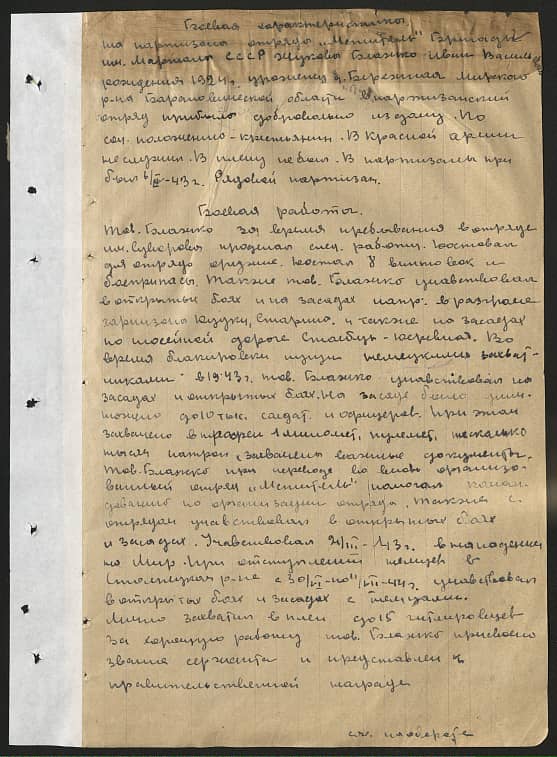 Боевая характеристика
на партизана отряда „Мститель" бригады
им. Маршала СССР Жукова Блажко Иван Васильевич
рождения 1924г. урожен. д. Бережная Мирского
р-на Барановической области. В партизанский
отряд прибыл добровольно из дому. По
соц. положению - крестьянин. В Красной армии
не служил. В плену не был. В партизаны при
был 43г. Рядовой партизан.
Боевая работа.
Тов. Блажко за время пребывания в отряде
им. Суворова проделал след. работу. Доставал
для отряда оружие. Достал 8 винтовок и
боеприпасы. Также тов. Блажко учавствовал
в открытых боях и на засадах напр. в разгроме
гарнизона и также на засадах
по шоссейной дороге Столбцы - Во
время блакировки пущи немецкими захват-
чиками в 1943г. тов. Блажко учавствовал на
засадах и открытых боях. На засаде было унич-
тожено до 10 тыс. солдат и офицеров. При этом
захвачено в трофеи 1 миномет, пулемет, несколько
тысяч патрон, захвачены важные документы.
Тов. Блажко при переходе во вновь организо-
ванный отряд „Мститель" помогал коман-
дованию по организации отряда. Также с
отрядом учавствовал в открытых боях
и засадах. Учавствовал 43г. в нападении
на Мир. При отступлении немцев в
Столпецком р-не с 30/VI - по 44г. учавствовал
в открытых боях и засадах с немцами.
Лично захватил в плен до 15 гитлеровцев
За хорошую работу тов. Блажко присвоено
звание сержанта и представлен к
правительственной награде
см. на обороте